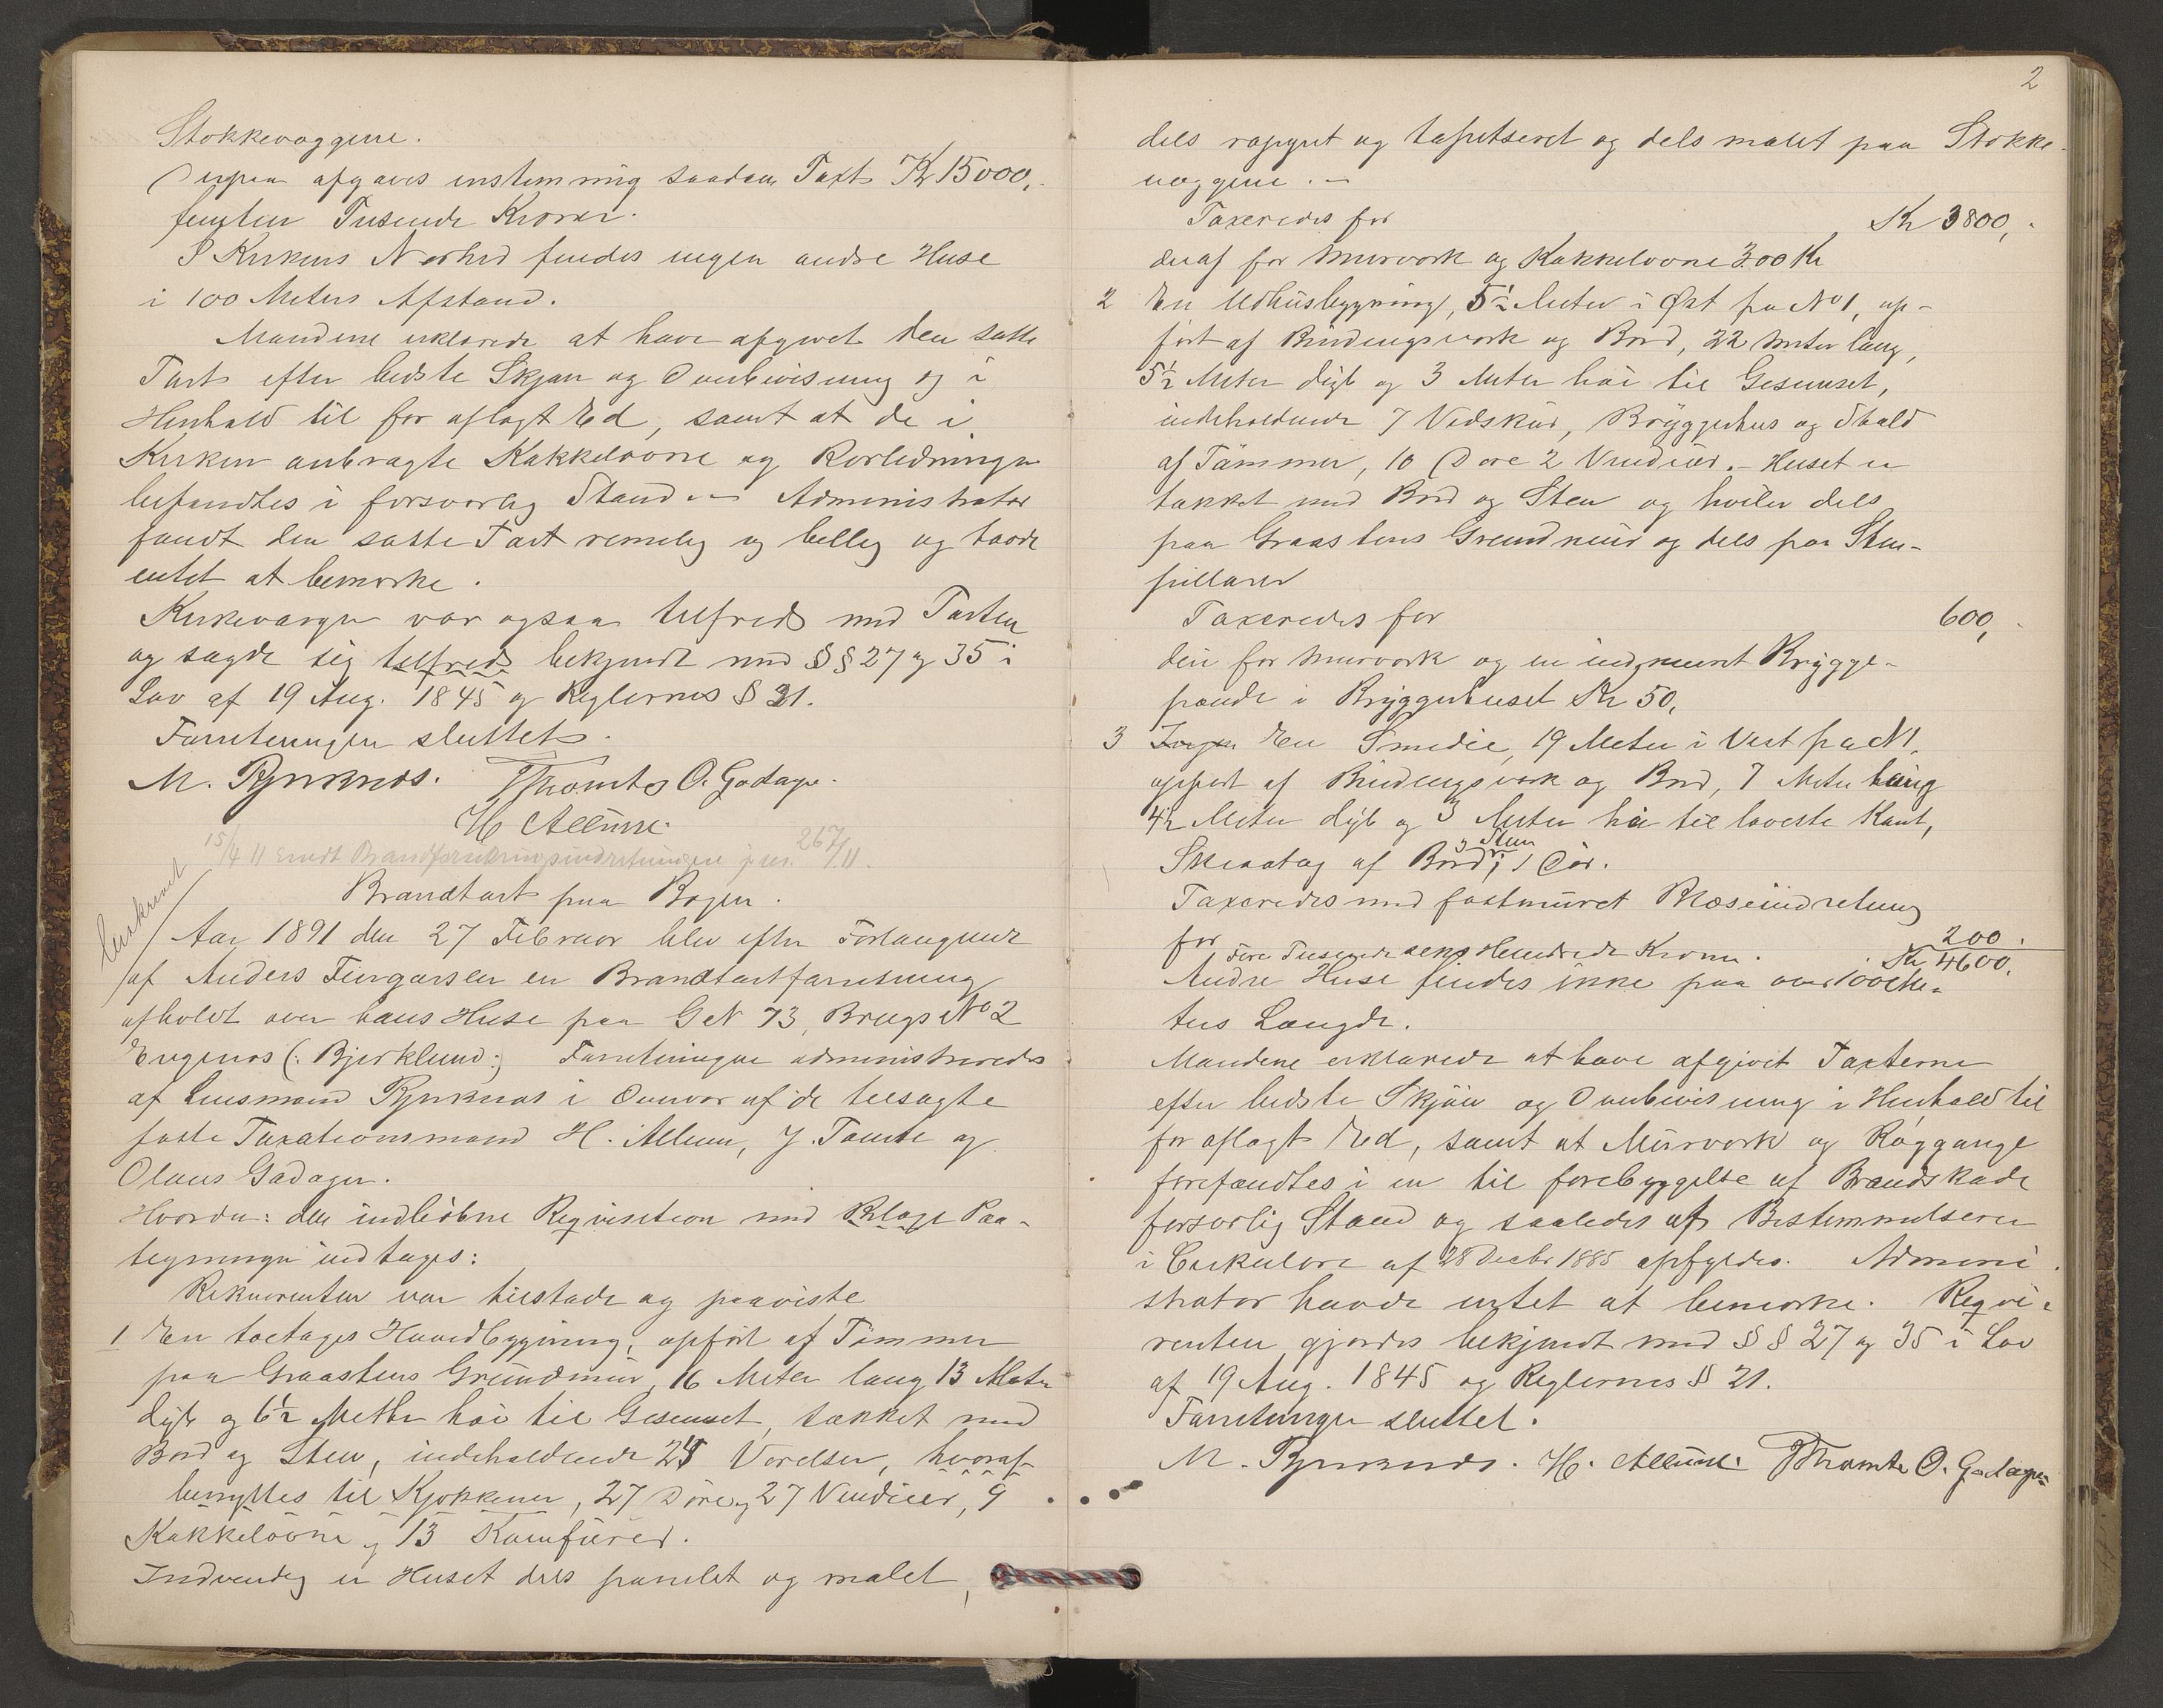 Stokkevæggene.
Derpaa afgaves enstemmig saadan Taxt Kr 15000,
femten Tusende Kroner.
I Kirkens Nærhed findes ingen andre Huse
i 100 Meters Afstand.
Mændene erklærede at have afgivet den satte
Taxt efter bedste Skjøn og Overbevisning og i
Henhold til før aflagt Ed, samt at de i
Kirken anbragte Kakkelovne og Rørledninger
befandtes i forsvarlig Stand. — Administrator
fandt den satte Taxt rimelig og billig og havde
intet at bemærke.
Kirkeværgen var ogsaa tilfreds med Taxten
og sagde sig tilfreds bekjendt med §§ 27 og 35 i
Lov af 19 Aug. 1845 og Reglernes § 21.
Forretningen sluttet.
M. Rynknæs. J Thomte O. Gadager.
H Allum.
15/4 11 sendt Brandforsikringsindretningen j.no. 267/11.
Brandtaxt paa Bøgen.
Aar 1891 den 27 Februar blev efter Forlangende
af Anders Fingarsen en Brandtaxtforretning
afholdt over hans Huse paa G N 73, Brugs No 2
Engenæs (: Bjerklund :) Forretningen administreredes
af Lensmand Rynknæs i Overvær af de tilsagte
faste Taxationsmænd H. Allum, J. Tomte og
Olaus Gadager.
Hvorda: den indløbne Reqvisition med Bilags Paa-
tegninger indtages:
Rekvirenten var tilstede og paaviste
1 En toetages Hovedbygning, opført af Tømmer
paa Graastens Grundmur, 16 Meter lang 13 Meter
dyb og 6½ Meter høi til Gesimset, tækket med
Bord og Sten, indeholdende 24 Værelser, hvoraf
benyttes til Kjøkkener, 27 Døre og 27 Vinduer, 9
Kakkelovne og 13 Komfurer.
Indvendig er Huset dels panelet og malet,
2
dels rappet og tapetseret og dels malet paa Stokke-
væggene. —
Taxeredes for Kr 3800,
deraf for Murværk og Kakkelovne 300 Kr
2 En Udhusbygning, 5½ Meter i Øst fra No 1, op-
ført af Bindingsværk og Bord, 22 Meter lang,
5½ Meter dyb og 3 Meter høi til Gesimset,
indeholdende 7 Vedskur, Bryggerhus og Stald
af Tømmer, 10 Døre 2 Vinduer. — Huset er
tækket med Bord og Sten og hviler dels
paa Graastens Grundmur og dels paa Sten-
pillarer
Taxeredes for 600,
deri for Murværk og en indmuret Brygge-
pande i Bryggerhuset Kr 50,
3 Ingen En Smedie, 19 Meter i Vest fra N 1,
opført af Bindingsværk og Bord, 7 Meter lang
4½ Meter dyb og 3 Meter høi til laveste Kant,
Skraatag af Bord og Sten, 1 Dør.
Taxeredes med fastmuret Blæseindretning
for 200.
Fire Tusende seks Hundrede Kroner. Kr 4600,
Andre Huse findes ikke paa over 100 Me-
ters Længde.
Mændene erklærede at have afgivet Taxterne
efter bedste Skjøn og Overbevisning i Henhold til
før aflagt Ed, samt at Murværk og Røggange
forefandtes i en til forebyggelse af Brandskade
forsvarlig Stand og saaledes at Bestemmelserne
i Cirkulære af 28 Decbr 1885 opfyldes. Admini-
strator havde intet at bemærke. Reqvi-
renten gjordes bekjendt med §§ 27 og 35 i Lov
af 19 Aug. 1845 og Reglernes § 21.
Forretningen sluttet.
M. Rynknæs. H. Allum. J Thomte O. Gadager